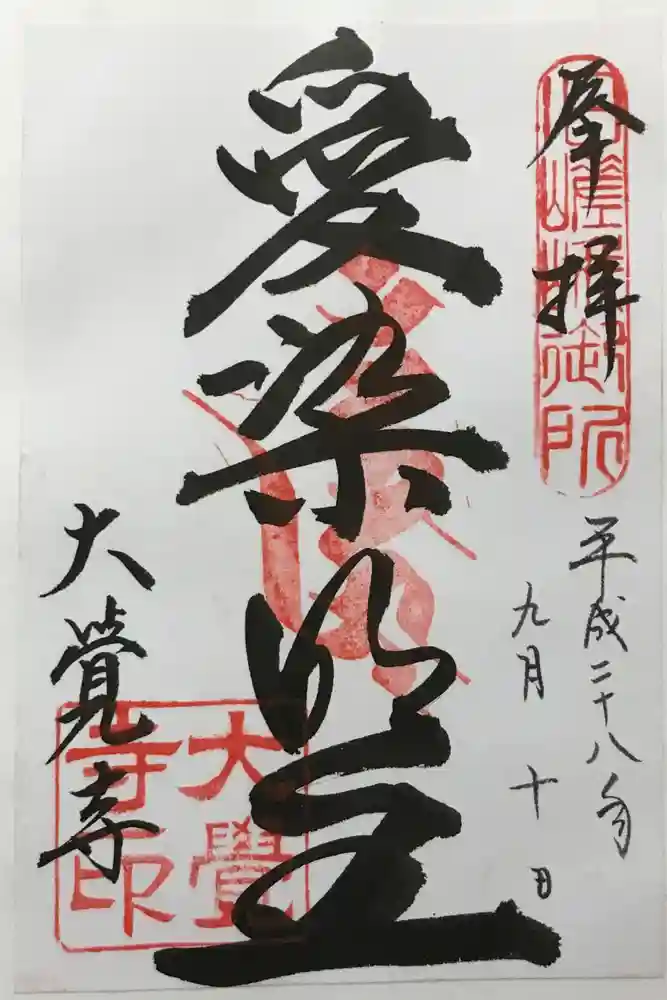 奉拝
嵯峨御所
平成二十八年
九月十日
愛染明王
大覺寺
大覺
寺印